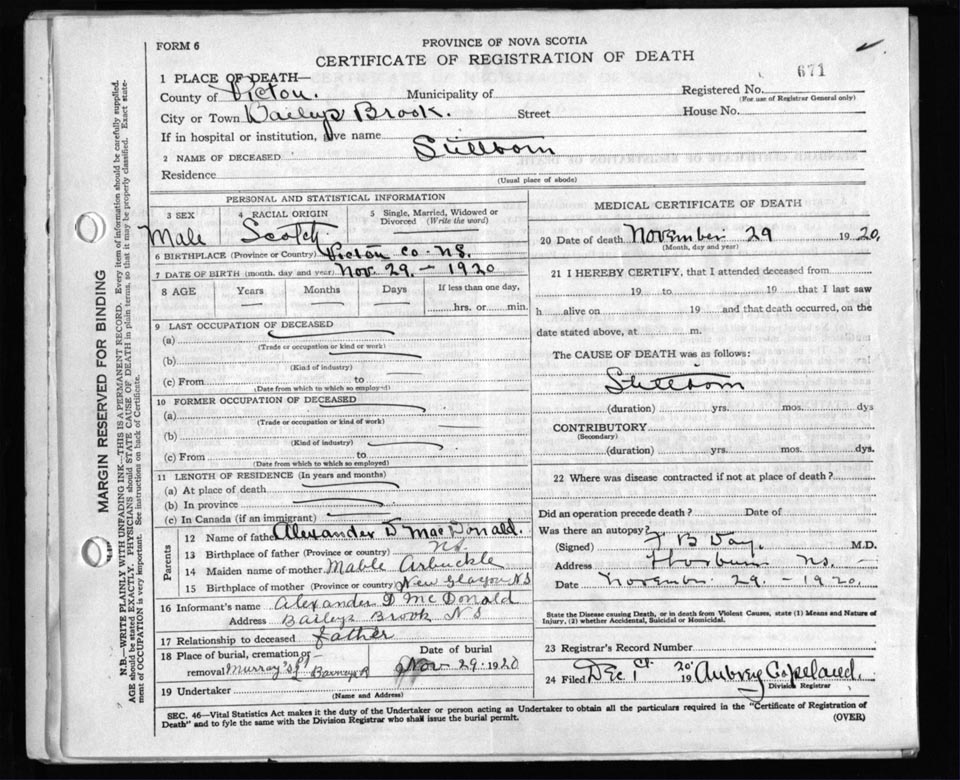 FORM 6
PROVINCE OF NOVA SCOTIA
CERTIFICATE OF REGISTRATION OF DEATH
671
1 PLACE OF DEATH—
County of Pictou. Municipality of Registered No.
(For use of Registrar General only)
City or Town Baileys Brook. Street House No.
If in hospital or institution, give name
2 NAME OF DECEASED Stillborn
Residence
(Usual place of abode)
PERSONAL AND STATISTICAL INFORMATION
3 SEX 4 RACIAL ORIGIN 5 Single, Married, Widowed or Divorced (Write the word)
Male Scotch
6 BIRTHPLACE (Province or Country) Pictou Co. N.S.
7 DATE OF BIRTH (month, day and year) Nov. 29. - 1920
8 AGE Years Months Days If less than one day,
hrs. or min.
9 LAST OCCUPATION OF DECEASED
(a)
(Trade or occupation or kind or work)
(b)
(Kind of industry)
(c) From to
(Date from which to which so employed)
10 FORMER OCCUPATION OF DECEASED
(a)
(Trade or occupation or kind of work)
(b)
(Kind of industry)
(c) From to
(Date from which to which so employed)
11 LENGTH OF RESIDENCE (In years and months)
(a) At place of death
(b) In province
(c) In Canada (if an immigrant)
Parents
12 Name of father Alexander D MacDonald.
13 Birthplace of father (Province or country) N.S.
14 Maiden name of mother Mable Arbuckle
15 Birthplace of mother (Province or country) New Glasgow N S
16 Informant's name Alexander D McDonald
Address Baileys Brook N S
17 Relationship to deceased father
18 Place of burial, cremation or removal Murray's Barneys R
Date of burial
Nov 29. 1920
19 Undertaker
(Name and Address)
MEDICAL CERTIFICATE OF DEATH
20 Date of death November 29 1920.
(Month, day and year)
21 I HEREBY CERTIFY, that I attended deceased from
19 to 19 that I last saw
h alive on 19 and that death occurred, on the
date stated above, at m.
The CAUSE OF DEATH was as follows:
Stillborn
(duration) yrs. mos. dys
CONTRIBUTORY
(Secondary)
(duration) yrs. mos. dys.
22 Where was disease contracted if not at place of death?
Did an operation precede death? Date of
Was there an autopsy?
(Signed) J B Day. M.D.
Address Thorburn N.S.
Date November 29. - 1920.
State the Disease causing Death, or in death from Violent Causes, state (1) Means and Nature of
Injury, (2) whether Accidental, Suicidal or Homicidal.
23 Registrar's Record Number
24 Filed Dec 1st 1920 Aubrey Copeland.
Division Registrar
SEC. 46—Vital Statistics Act makes it the duty of the Undertaker or person acting as Undertaker to obtain all the particulars required in the "Certificate of Registration of
Death" and to fyle the same with the Division Registrar who shall issue the burial permit.
(OVER)
MARGIN RESERVED FOR BINDING
N.B.—WRITE PLAINLY WITH UNFADING INK—THIS IS A PERMANENT RECORD. Every item of information should be carefully supplied.
AGE should be stated EXACTLY. PHYSICIANS should STATE CAUSE OF DEATH in plain terms, so that it may be properly classified. Exact state-
ment of OCCUPATION is very important. See instructions on back of Certificate.